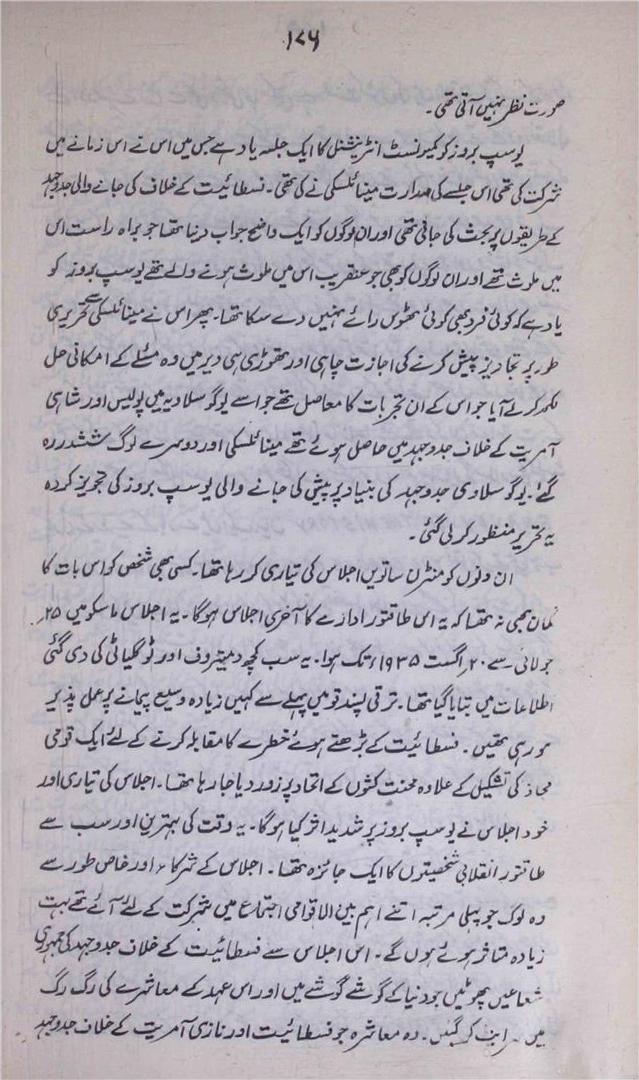 ۱۷۶
صورت نظر نہیں آتی تھی۔
یوسپ بروز کو کمیونسٹ انٹرنیشنل کا ایک جلسہ یاد ہے جس میں اس نے اس زمانے میں
شرکت کی تھی اس جلسے کی صدارت مینائلسکی نے کی تھی۔ فسطائیت کے خلاف کی جانے والی جدوجہد
کے طریقوں پر بحث کی جانی تھی اور ان لوگوں کو ایک واضح جواب دینا تھا جو براہ راست اس
میں ملوث تھے اور ان لوگوں کو بھی جو عنقریب اس میں ملوث ہونے والے تھے یوسپ بروز کو
یاد ہے کہ کوئی فرد بھی کوئی ٹھوس رائے نہیں دے سکا تھا۔ پھر اس نے مینائلسکی سے تحریری
طور پر تجاویز پیش کرنے کی اجازت چاہی اور تھوڑی سی دیر میں وہ مسئلے کے امکانی حل
لکھ کر لے آیا جو اس کے ان تجربات کا ماحصل تھے جو اسے یوگوسلاویہ میں پولیس اور شاہی
آمریت کے خلاف جدوجہد میں حاصل ہوئے تھے مینائلسکی اور دوسرے لوگ ششدر رہ
گئے۔ یوگوسلاوی جدوجہد کی بنیاد پر پیش کی جانے والی یوسپ بروز کی تجویز کردہ
یہ تحریر منظور کر لی گئی۔
ان دنوں کومنٹرن ساتویں اجلاس کی تیاری کر رہا تھا۔ کسی بھی شخص کو اس بات کا
گمان بھی نہ تھا کہ یہ اس طاقتور ادارے کا آخری اجلاس ہوگا۔ یہ اجلاس ماسکو میں ۲۵؍
جولائی سے ۲۰؍ اگست ۱۹۳۵ء تک ہوا۔ یہ سب کچھ دمیتروف اور ٹوگلیاٹی کی دی گئی
اطلاعات میں بتایا گیا تھا۔ ترقی پسند قومیں پہلے سے کہیں زیادہ وسیع پیمانے پر عمل پذیر
ہو رہی تھیں۔ فسطائیت کے بڑھتے ہوئے خطرے کا مقابلہ کرنے کے لئے ایک قومی
محاذ کی تشکیل کے علاوہ محنت کشوں کے اتحاد پر زور دیا جا رہا تھا۔ اجلاس کی تیاری اور
خود اجلاس نے یوسپ بروز پر شدید اثر کیا ہوگا۔ یہ وقت کی بہترین اور سب سے
طاقتور انقلابی شخصیتوں کا ایک جائزہ تھا۔ اجلاس کے شرکاء اور خاص طور سے
وہ لوگ جو پہلی مرتبہ اتنے اہم بین الاقوامی اجتماع میں شرکت کے لئے آئے تھے بہت
زیادہ متاثر ہوئے ہوں گے۔ اس اجلاس سے فسطائیت کے خلاف جدوجہد کی جمہوری
شعاعیں پھوٹیں جو دنیا کے گوشے گوشے میں اور اس عہد کے معاشرے کی رگ رگ
میں سرایت کر گئیں۔ وہ معاشرہ جو فسطائیت اور نازی آمریت کے خلاف جدوجہد